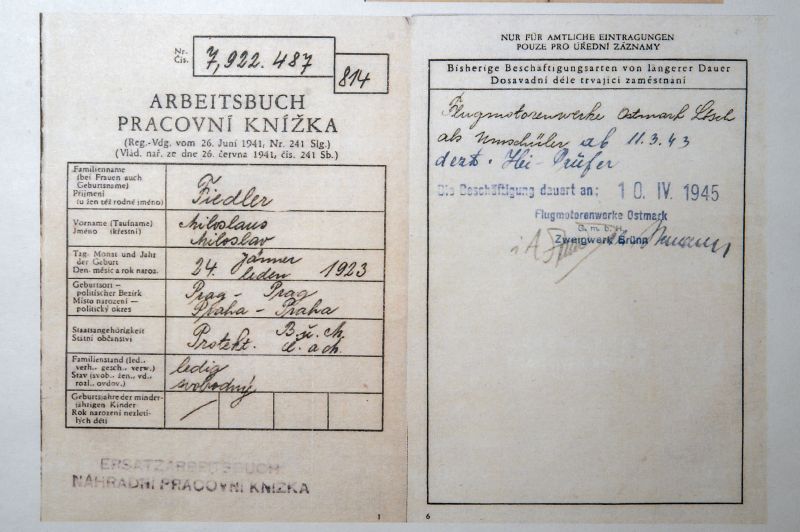 Nr.
Čís.
7,922.487
814
ARBEITSBUCH
PRACOVNÍ KNÍŽKA
(Reg.-Vdg. vom 26. Juni 1941, Nr. 241 Slg.)
(Vlád. nař. ze dne 26. června 1941, čís. 241 Sb.)
Familienname
(bei Frauen auch
Geburtsname)
Příjmení
(u žen též rodné jméno)
Fiedler
Vorname (Taufname)
Jméno (křestní)
Miloslaus
Miloslav
Tag, Monat und Jahr
der Geburt
Den, měsíc a rok naroz.
24. Jänner
leden 1923
Geburtsort -
politischer Bezirk
Místo narození -
politický okres
Prag - Prag
Praha - Praha
Staatsangehörigkeit
Státní občanství
Protekt. B. u. M.
Č. a M.
Familienstand (led.,
verh., gesch., verw.)
Stav (svob., žen., vd.,
rozl., ovdov.)
ledig
svobodný
Geburtsjahre der minder-
jährigen Kinder
Rok narození nezleti-
lých dětí
ERSATZARBEITSBUCH
NÁHRADNÍ PRACOVNÍ KNÍŽKA
1
NUR FÜR AMTLICHE EINTRAGUNGEN
POUZE PRO ÚŘEDNÍ ZÁZNAMY
Bisherige Beschäftigungsarten von längerer Dauer
Dosavadní déle trvající zaměstnání
Flugmotorenwerke Ostmark
als Umschüler ab 11.3.43
derzt. Hei-Prüfer
Die Beschäftigung dauert an: 10. IV. 1945
Flugmotorenwerke Ostmark
G. m. b. H.
Zweigwerk Brünn
6